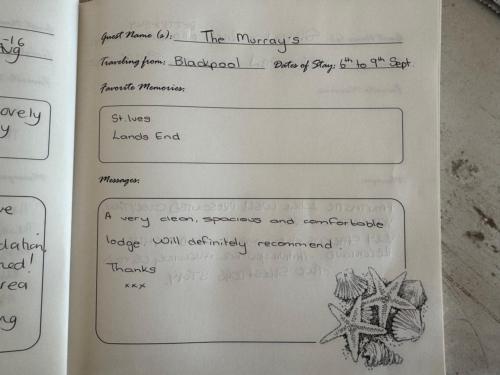 -16
ug
ovely
y
ve
dation
ned!
rea
ng
Guest Name (s): The Murray's
Traveling from: Blackpool Dates of Stay: 6th to 9th Sept.
Favorite Memories:
St. Ives
Lands End
Messages:
A very clean, spacious and comfortable
lodge. Will definitely recommend.
Thanks
xxx